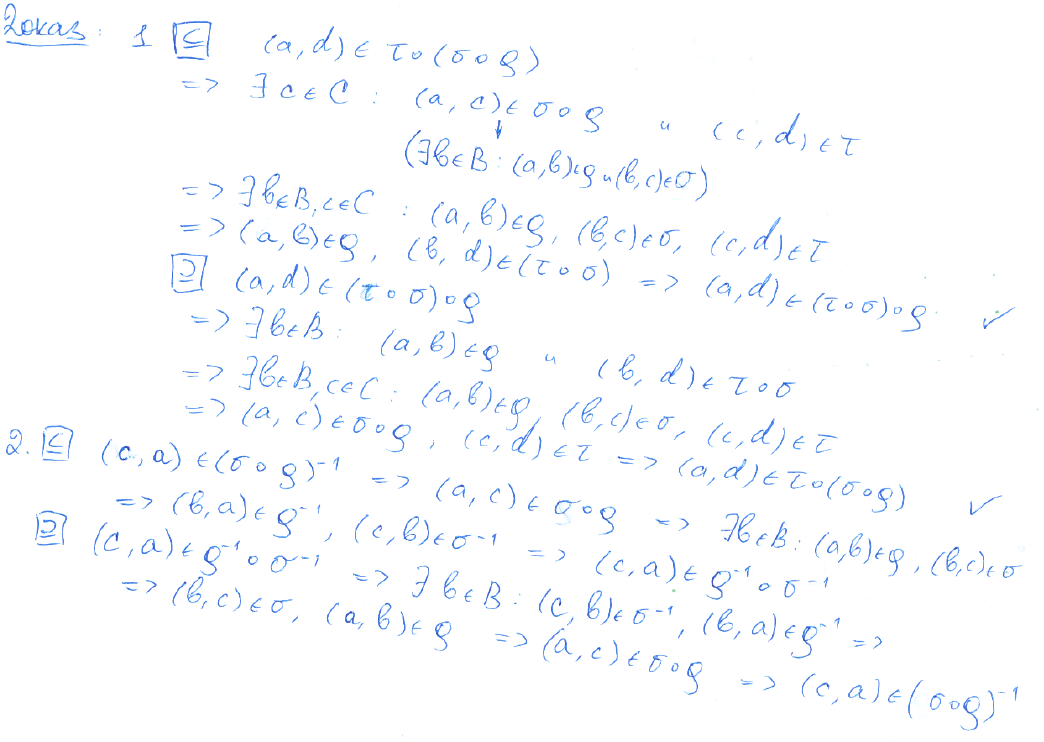 Доказ: 1 ⊆ (a,d) ∈ τ∘(σ∘ρ)
=> ∃ c∈C : (a,c)∈ σ∘ρ и (c,d) ∈ τ
↓
(∃в∈B : (a,в)∈ρ и (в,c)∈σ)
=> ∃в∈B, c∈C : (a,в)∈ρ, (в,c)∈σ, (c,d)∈τ
=> (a,в)∈ρ, (в,d)∈(τ∘σ) => (a,d)∈(τ∘σ)∘ρ ✓
⊇ (a,d)∈(τ∘σ)∘ρ
=> ∃в∈B : (a,в)∈ρ и (в,d)∈τ∘σ
=> ∃в∈B, c∈C : (a,в)∈ρ, (в,c)∈σ, (c,d)∈τ
=> (a,c)∈σ∘ρ, (c,d)∈τ => (a,d)∈τ∘(σ∘ρ) ✓
2. ⊆ (c,a)∈(σ∘ρ)⁻¹ => (a,c)∈σ∘ρ => ∃в∈B : (a,в)∈ρ, (в,c)∈σ
=> (в,a)∈ρ⁻¹, (c,в)∈σ⁻¹ => (c,a)∈ρ⁻¹∘σ⁻¹
⊇ (c,a)∈ρ⁻¹∘σ⁻¹ => ∃в∈B : (c,в)∈σ⁻¹, (в,a)∈ρ⁻¹ =>
=> (в,c)∈σ, (a,в)∈ρ => (a,c)∈σ∘ρ => (c,a)∈(σ∘ρ)⁻¹